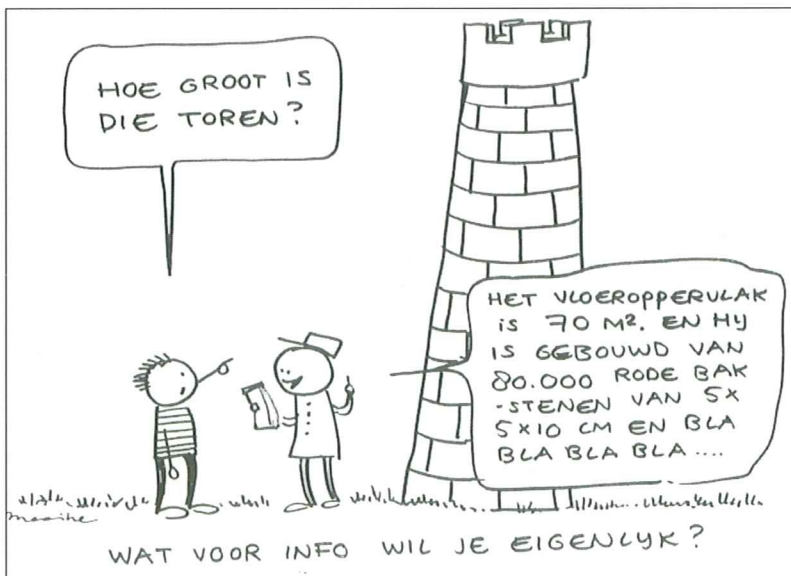 HOE GROOT IS
DIE TOREN?
HET VLOEROPPERVLAK
IS 70 M². EN HIJ
IS GEBOUWD VAN
80.000 RODE BAK
-STENEN VAN 5X
5X10 CM EN BLA
BLA BLA BLA....
maaike
WAT VOOR INFO WIL JE EIGENLIJK?